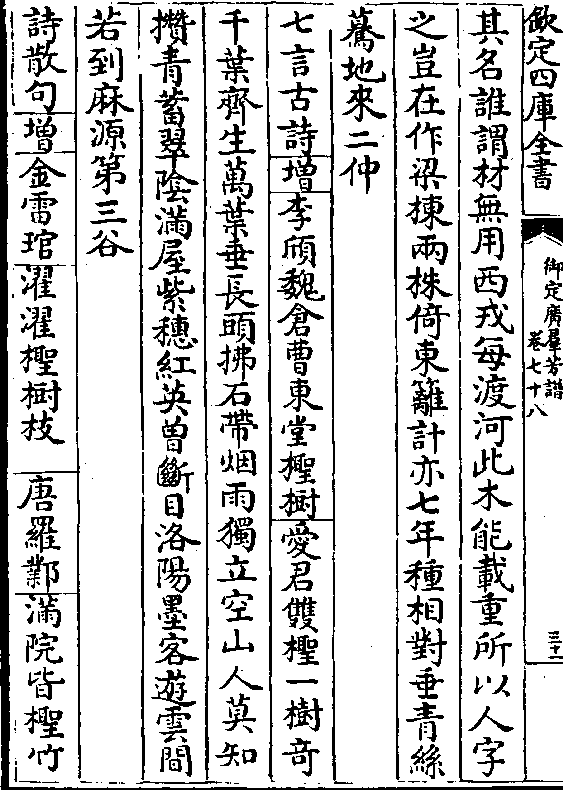 欽定四庫全書
御定廣羣芳譜
卷七十八
三十一
其名誰謂材無用西戎每渡河此木能載重所以人字
之豈在作梁棟兩株倚東籬計亦七年種相對垂青絲
驀地來二仲
七言古詩增李頎魏倉曹東堂檉樹愛君雙檉一樹奇
千葉齊生萬葉垂長頭拂石帶烟雨獨立空山人莫知
攢青蓄翠陰滿屋紫穗紅英曾斷目洛陽墨客遊雲間
若到麻源第三谷
詩散句增金雷琯濯濯檉樹枝 唐羅鄴滿院皆檉竹